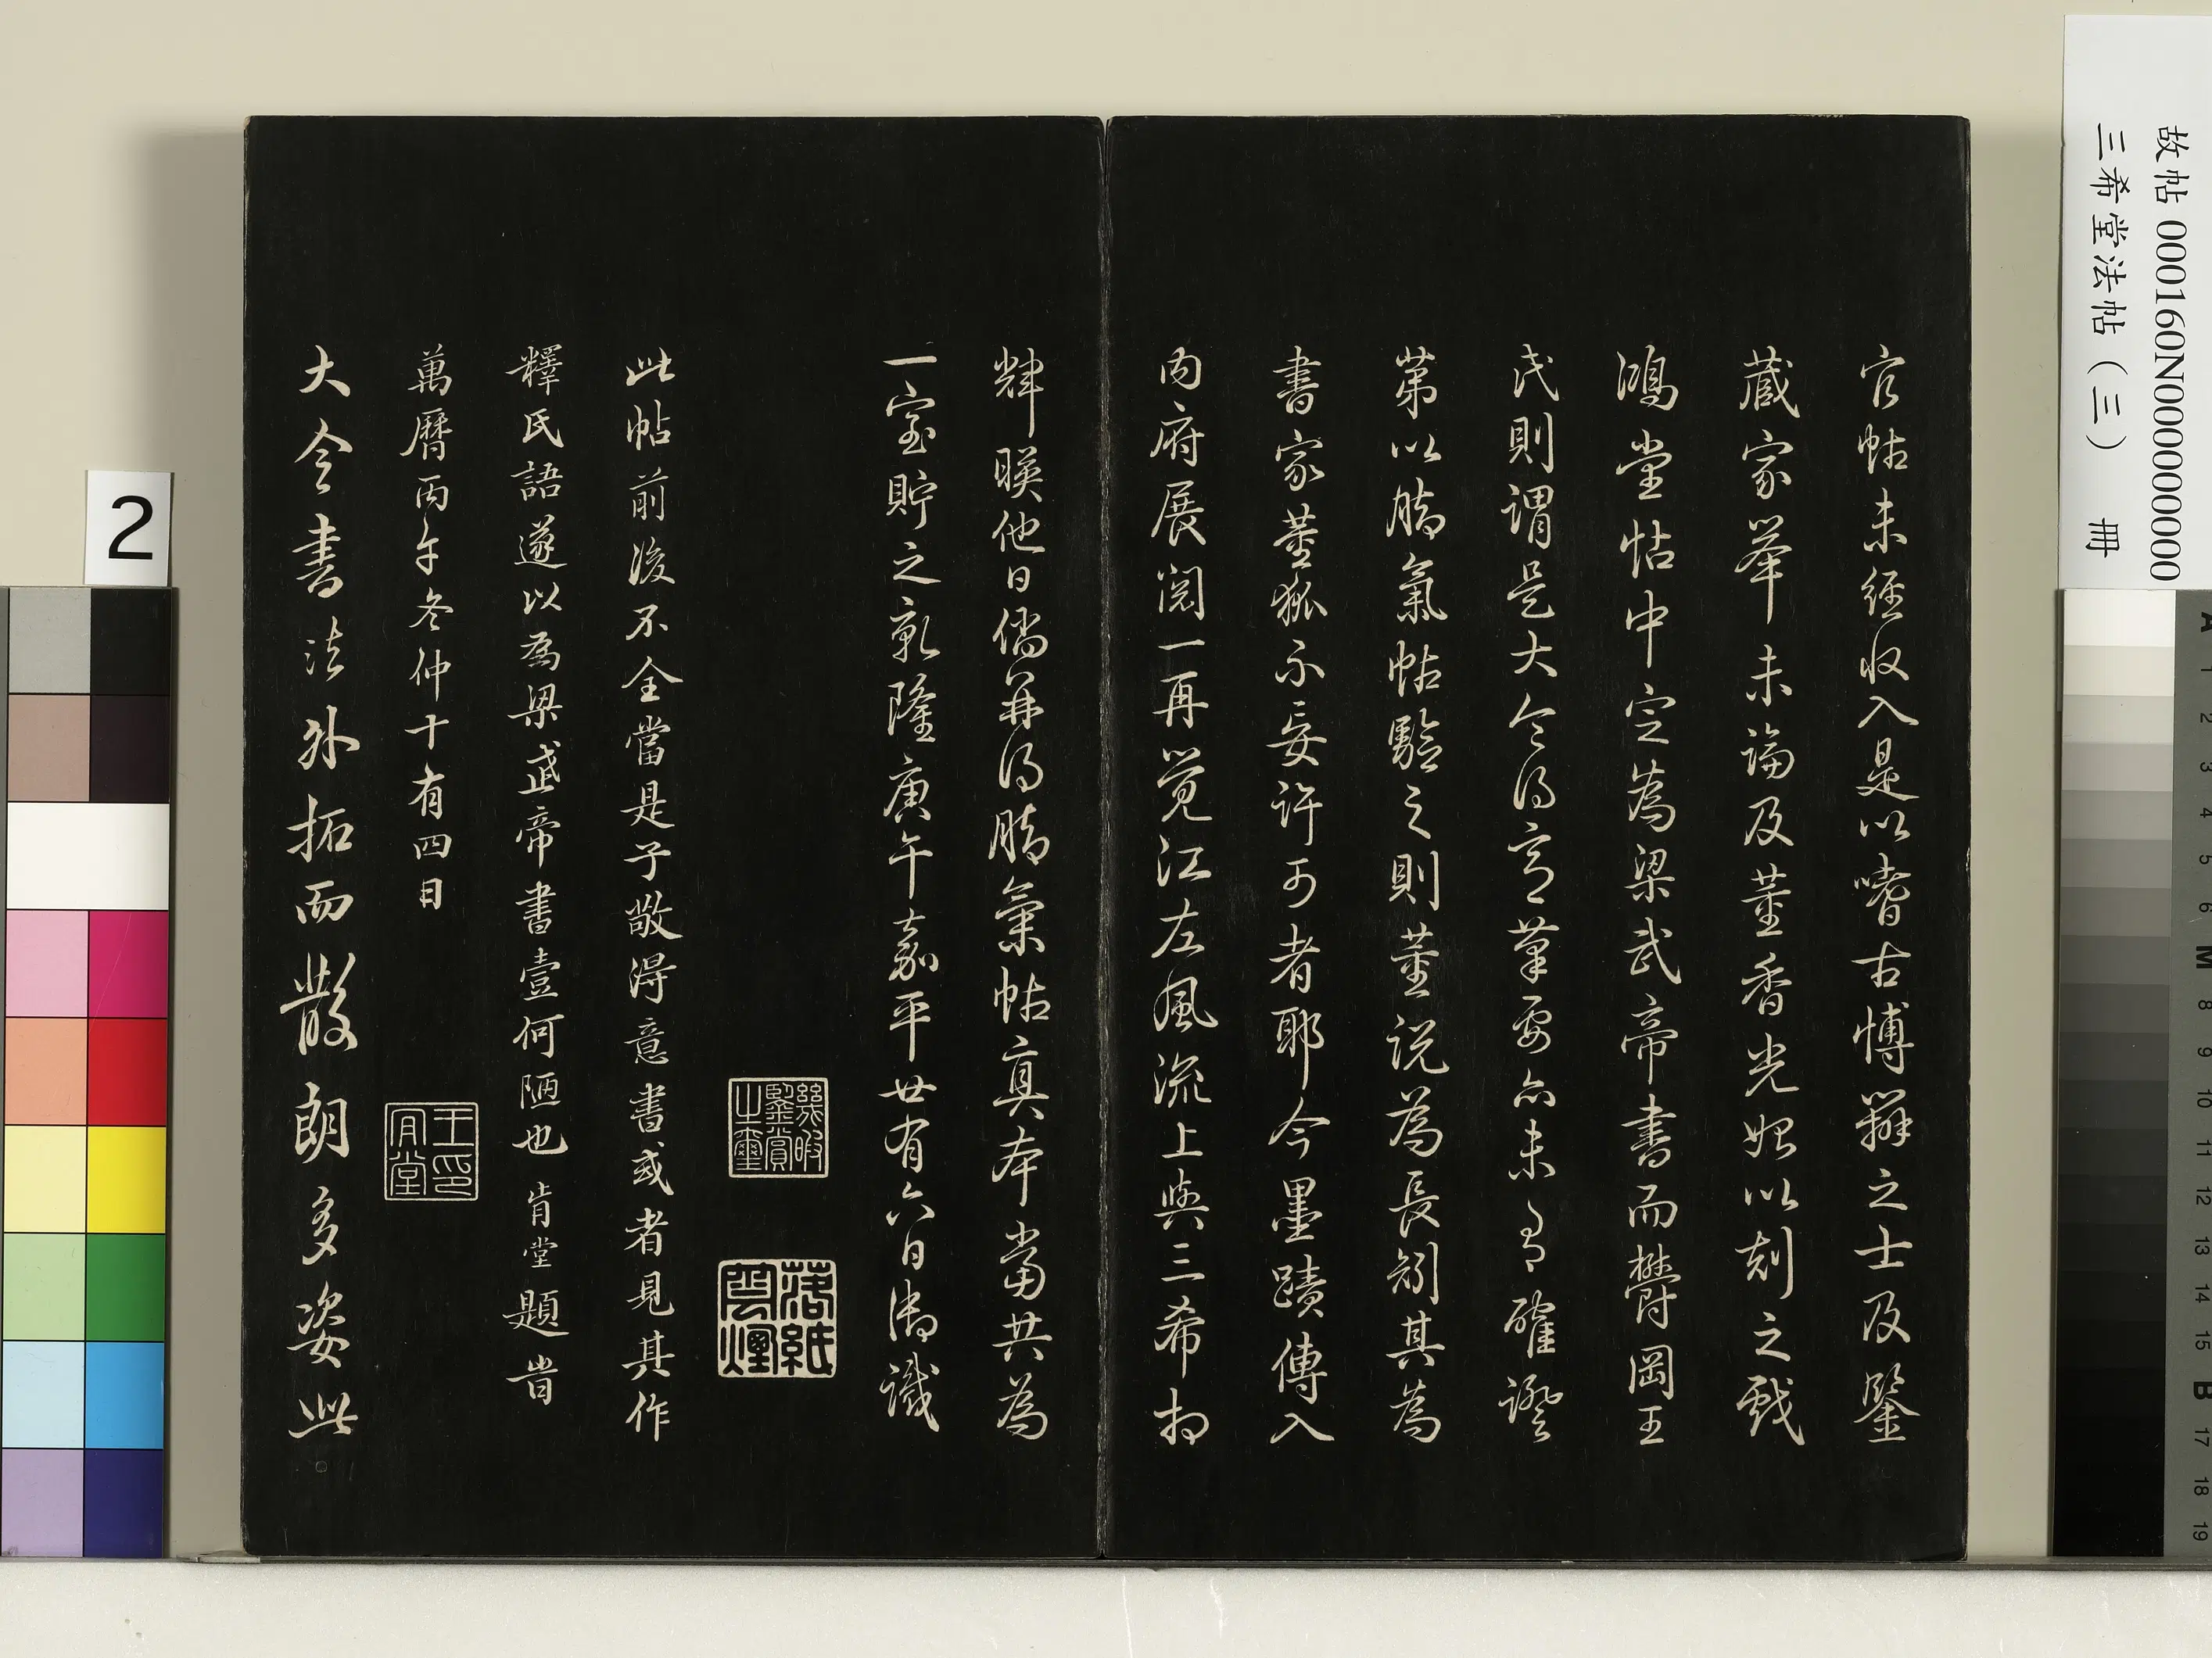 官帖未經收入是以嗜古博辯之士及鑒
藏家举未論及董香光始以刻之戲
鴻堂帖中定為梁武帝書而欝岡王
氏則謂是大令得意筆要亦未有確證
第以鵝氣帖驗之則董說為長刻其為
書家董狐不妄許可者耶今墨蹟傳入
內府展閱一再覺江左風流上與三希相
輝暎他日倘并得氣帖真本當共為
一室貯之乾隆庚午嘉平廿有六日御識
幾暇鑒賞之璽
落紙雲煙
此帖前後不全當是子敬得意書或者見其作
釋氏語遂以為梁武帝書壹何陋也 肯堂題旹
萬曆丙午冬仲十有四日
王肯堂印
大令書法外拓而散朗多姿此
2
故帖 000160N000000000
三希堂法帖（三） 冊
A 1 2 3 4 5 6 M 8 9 10 11 12 13 14 15 B 17 18 19